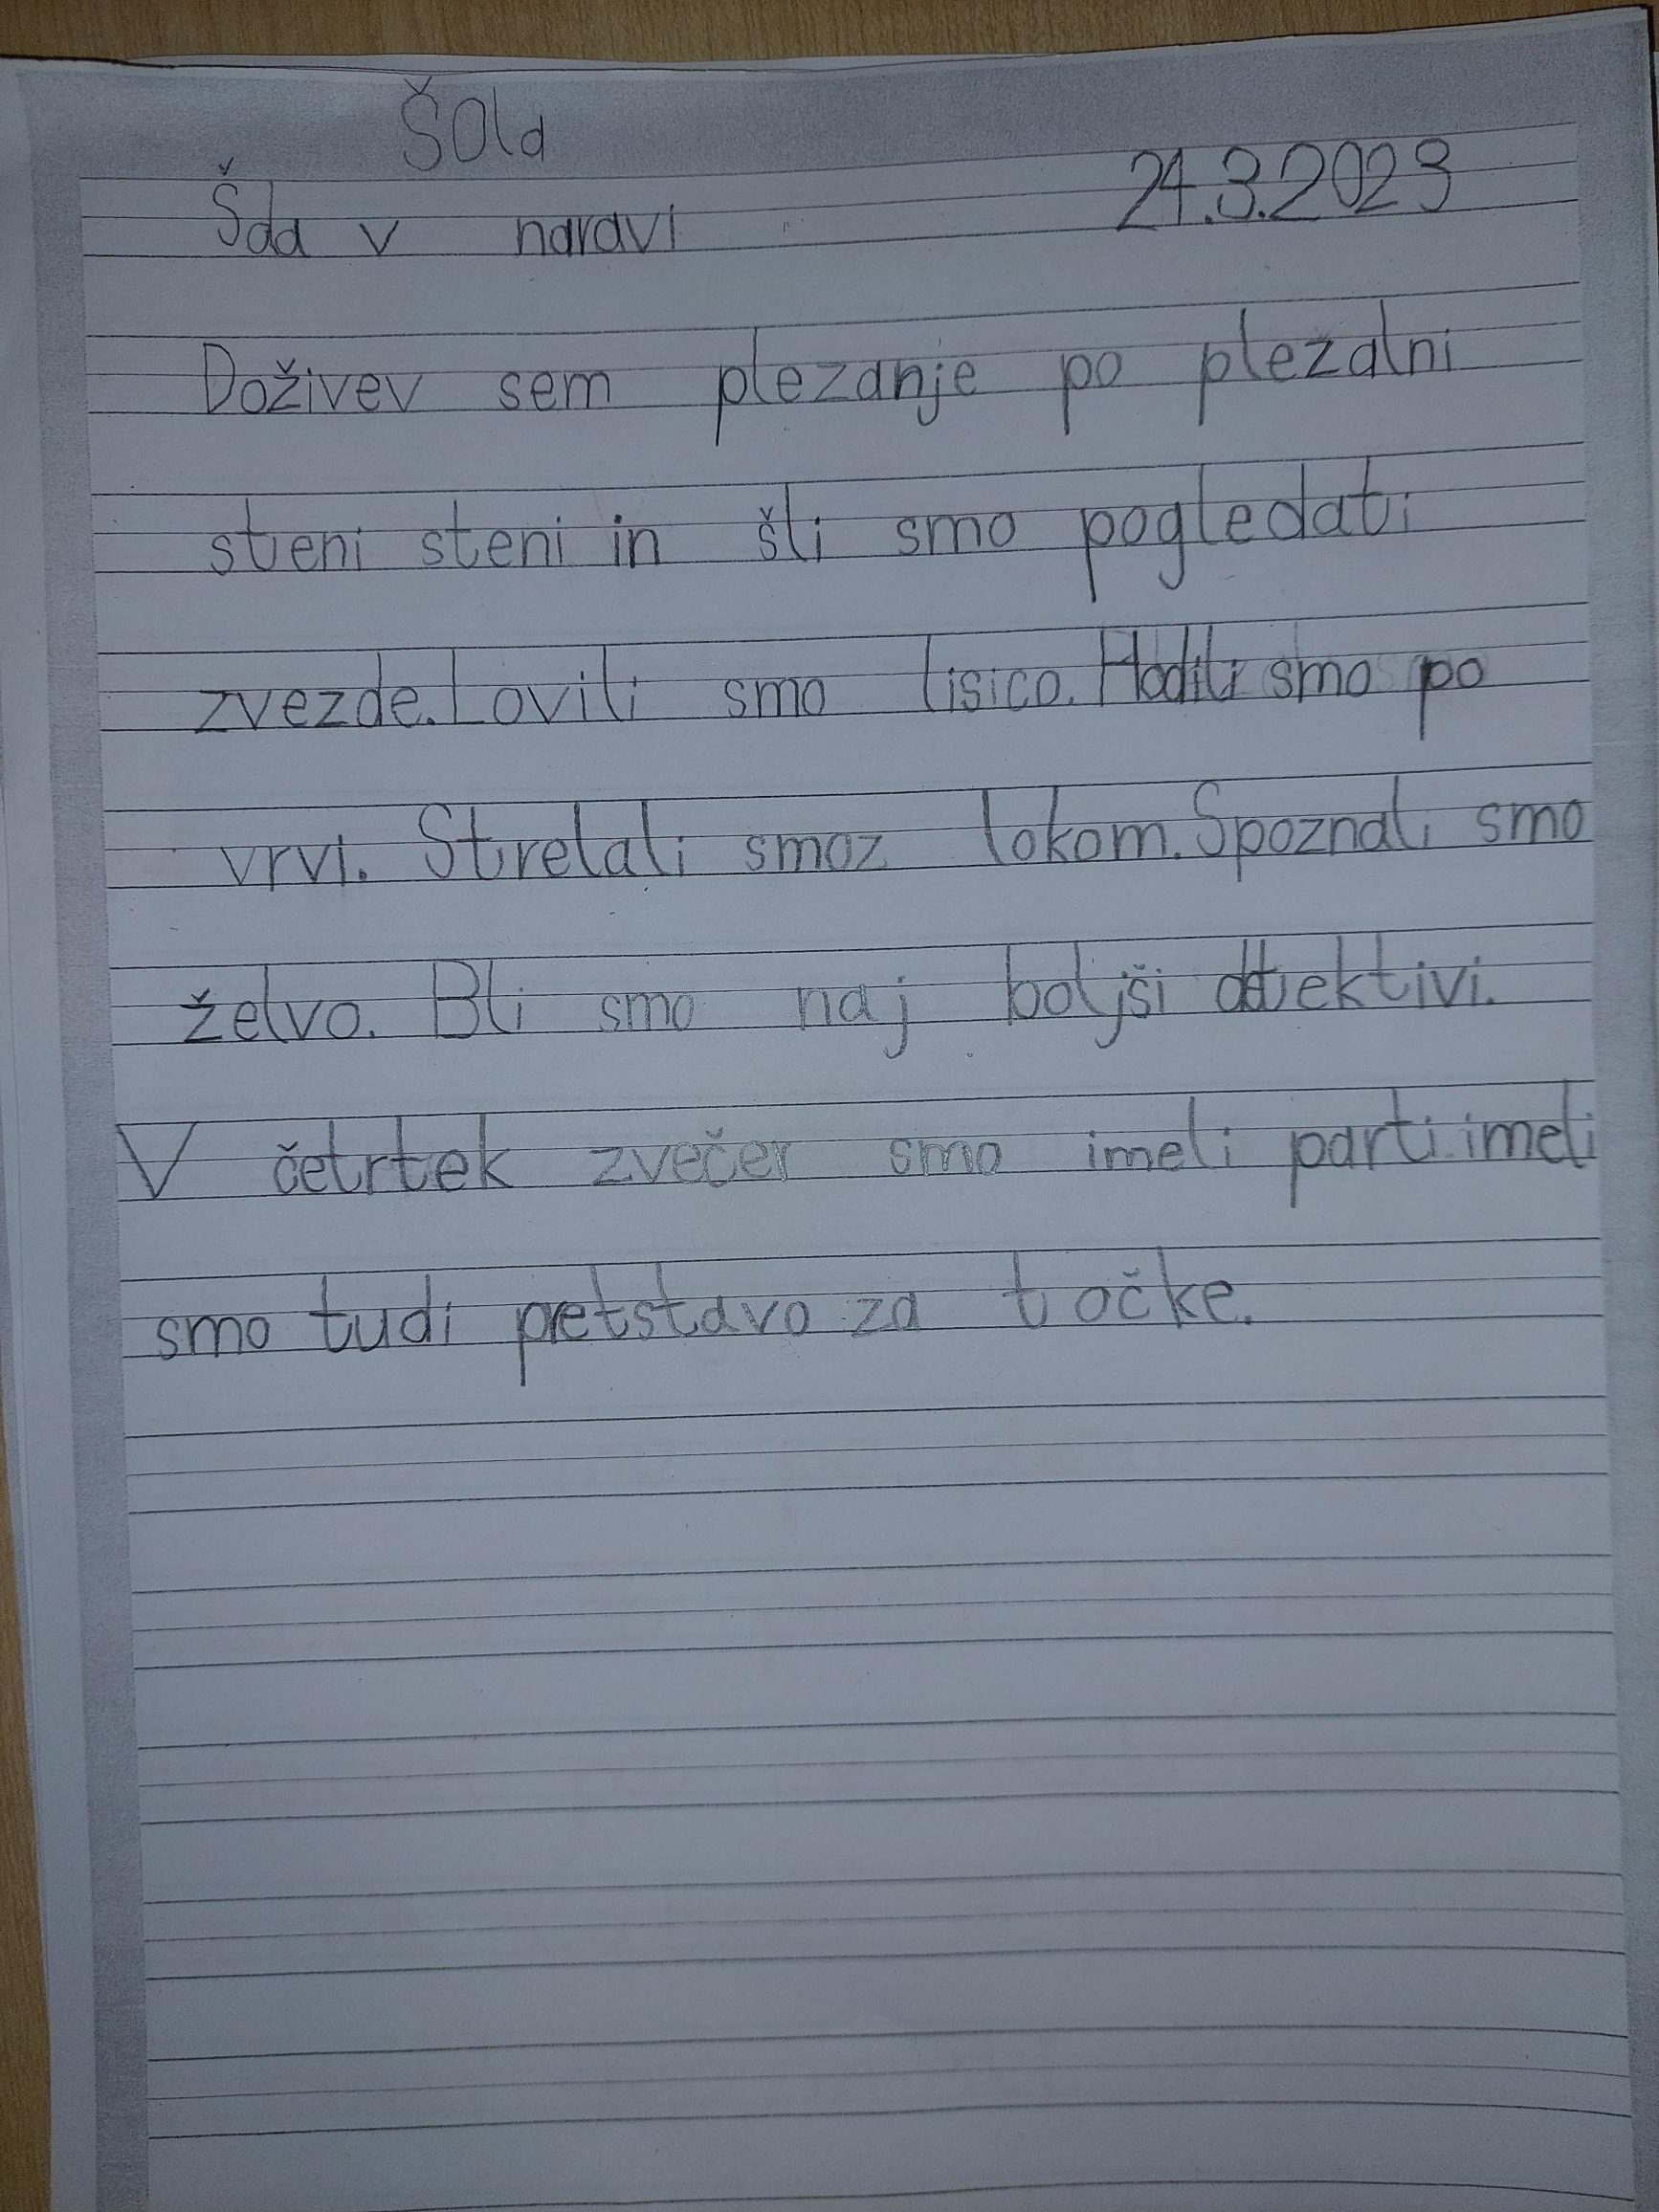 Šola
Šola v naravi 24.3.2023
Doživev sem plezanje po pležalni
steni steni in šli smo pogledati
zvezde. Lovili smo lisico. Hodili smo po
vrvi. Strelali smoz lokom. Spoznali smo
želvo. Bli smo naj boljši detektivi.
V četrtek zvečer smo imeli parti. imeli
smo tudi pretstavo za točke.